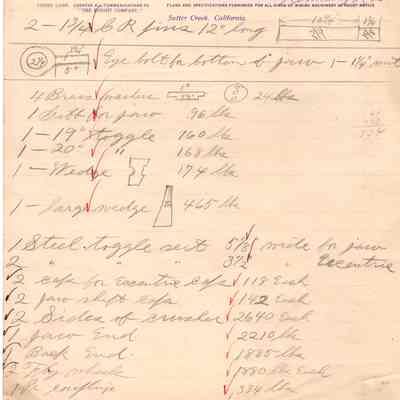 ADDRESS ALL COMMUNICATIONS TO
"THE KNIGHT COMPANY."
PLANS AND SPECIFICATIONS FURNISHED FOR ALL KINDS OF MINING MACHINERY
Sutter Creek, California
2 - 1 3/4 C R pins 12" long
2 1/2
5"
Eye bolt for bottom of jaw 1 - 1 1/2 nut
4 Brass 24 lbs
1 for jaw 96 lbs
1 - 19" toggle 160 lbs
1 - 20" " 168 lbs
1 - Wedge 174 lbs
1 - large wedge 465 lbs
1 Steel toggle seit 5 1/8 wide for jaw
2 " " " 3 1/2 " Eccentric
2 caps for eccentric caps 118 Each
2 jaw shift caps 142 Each
2 Sides of crusher 2640 Each
1 jaw End 2210 lbs
1 Back End 1885 lbs
2 Fly wheels 1880 lbs Each
1 334 lbs